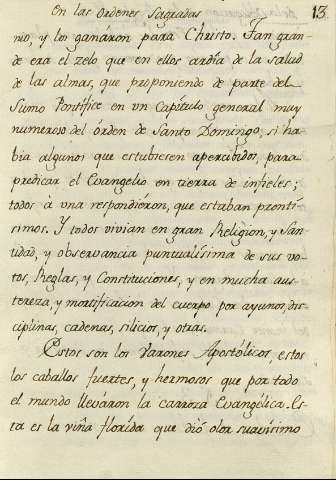 En las Ordenes Sagradas 13.
nio, y los ganáron para Christo. Tan gran-
de era el zelo que en ellos ardía de la salud
de las almas, que proponiendo de parte del
Sumo Pontífice en vn Capítulo general muy
numeroso del órden de Santo Domingo, si ha-
bía algunos que estubiesen apercibidos, para
predicar el Evangelio en tierra de infieles;
todos á una respondiéron, que estaban prontí-
simos. Y todos vivian en gran Religion, y San-
tidad, y observancia puntualísima de sus vo-
tos, Reglas, y Constituciones, y en mucha aus-
tereza, y mortificacion del cuerpo por ayunos, dis-
ciplinas, cadenas, silicios, y otras.
Estos son los Varones Apostólicos, estos
los caballos fuertes, y hermosos que por todo
el mundo lleváron la carroza Evangélica. Es-
ta es la viña florida que dió olor suavísimo